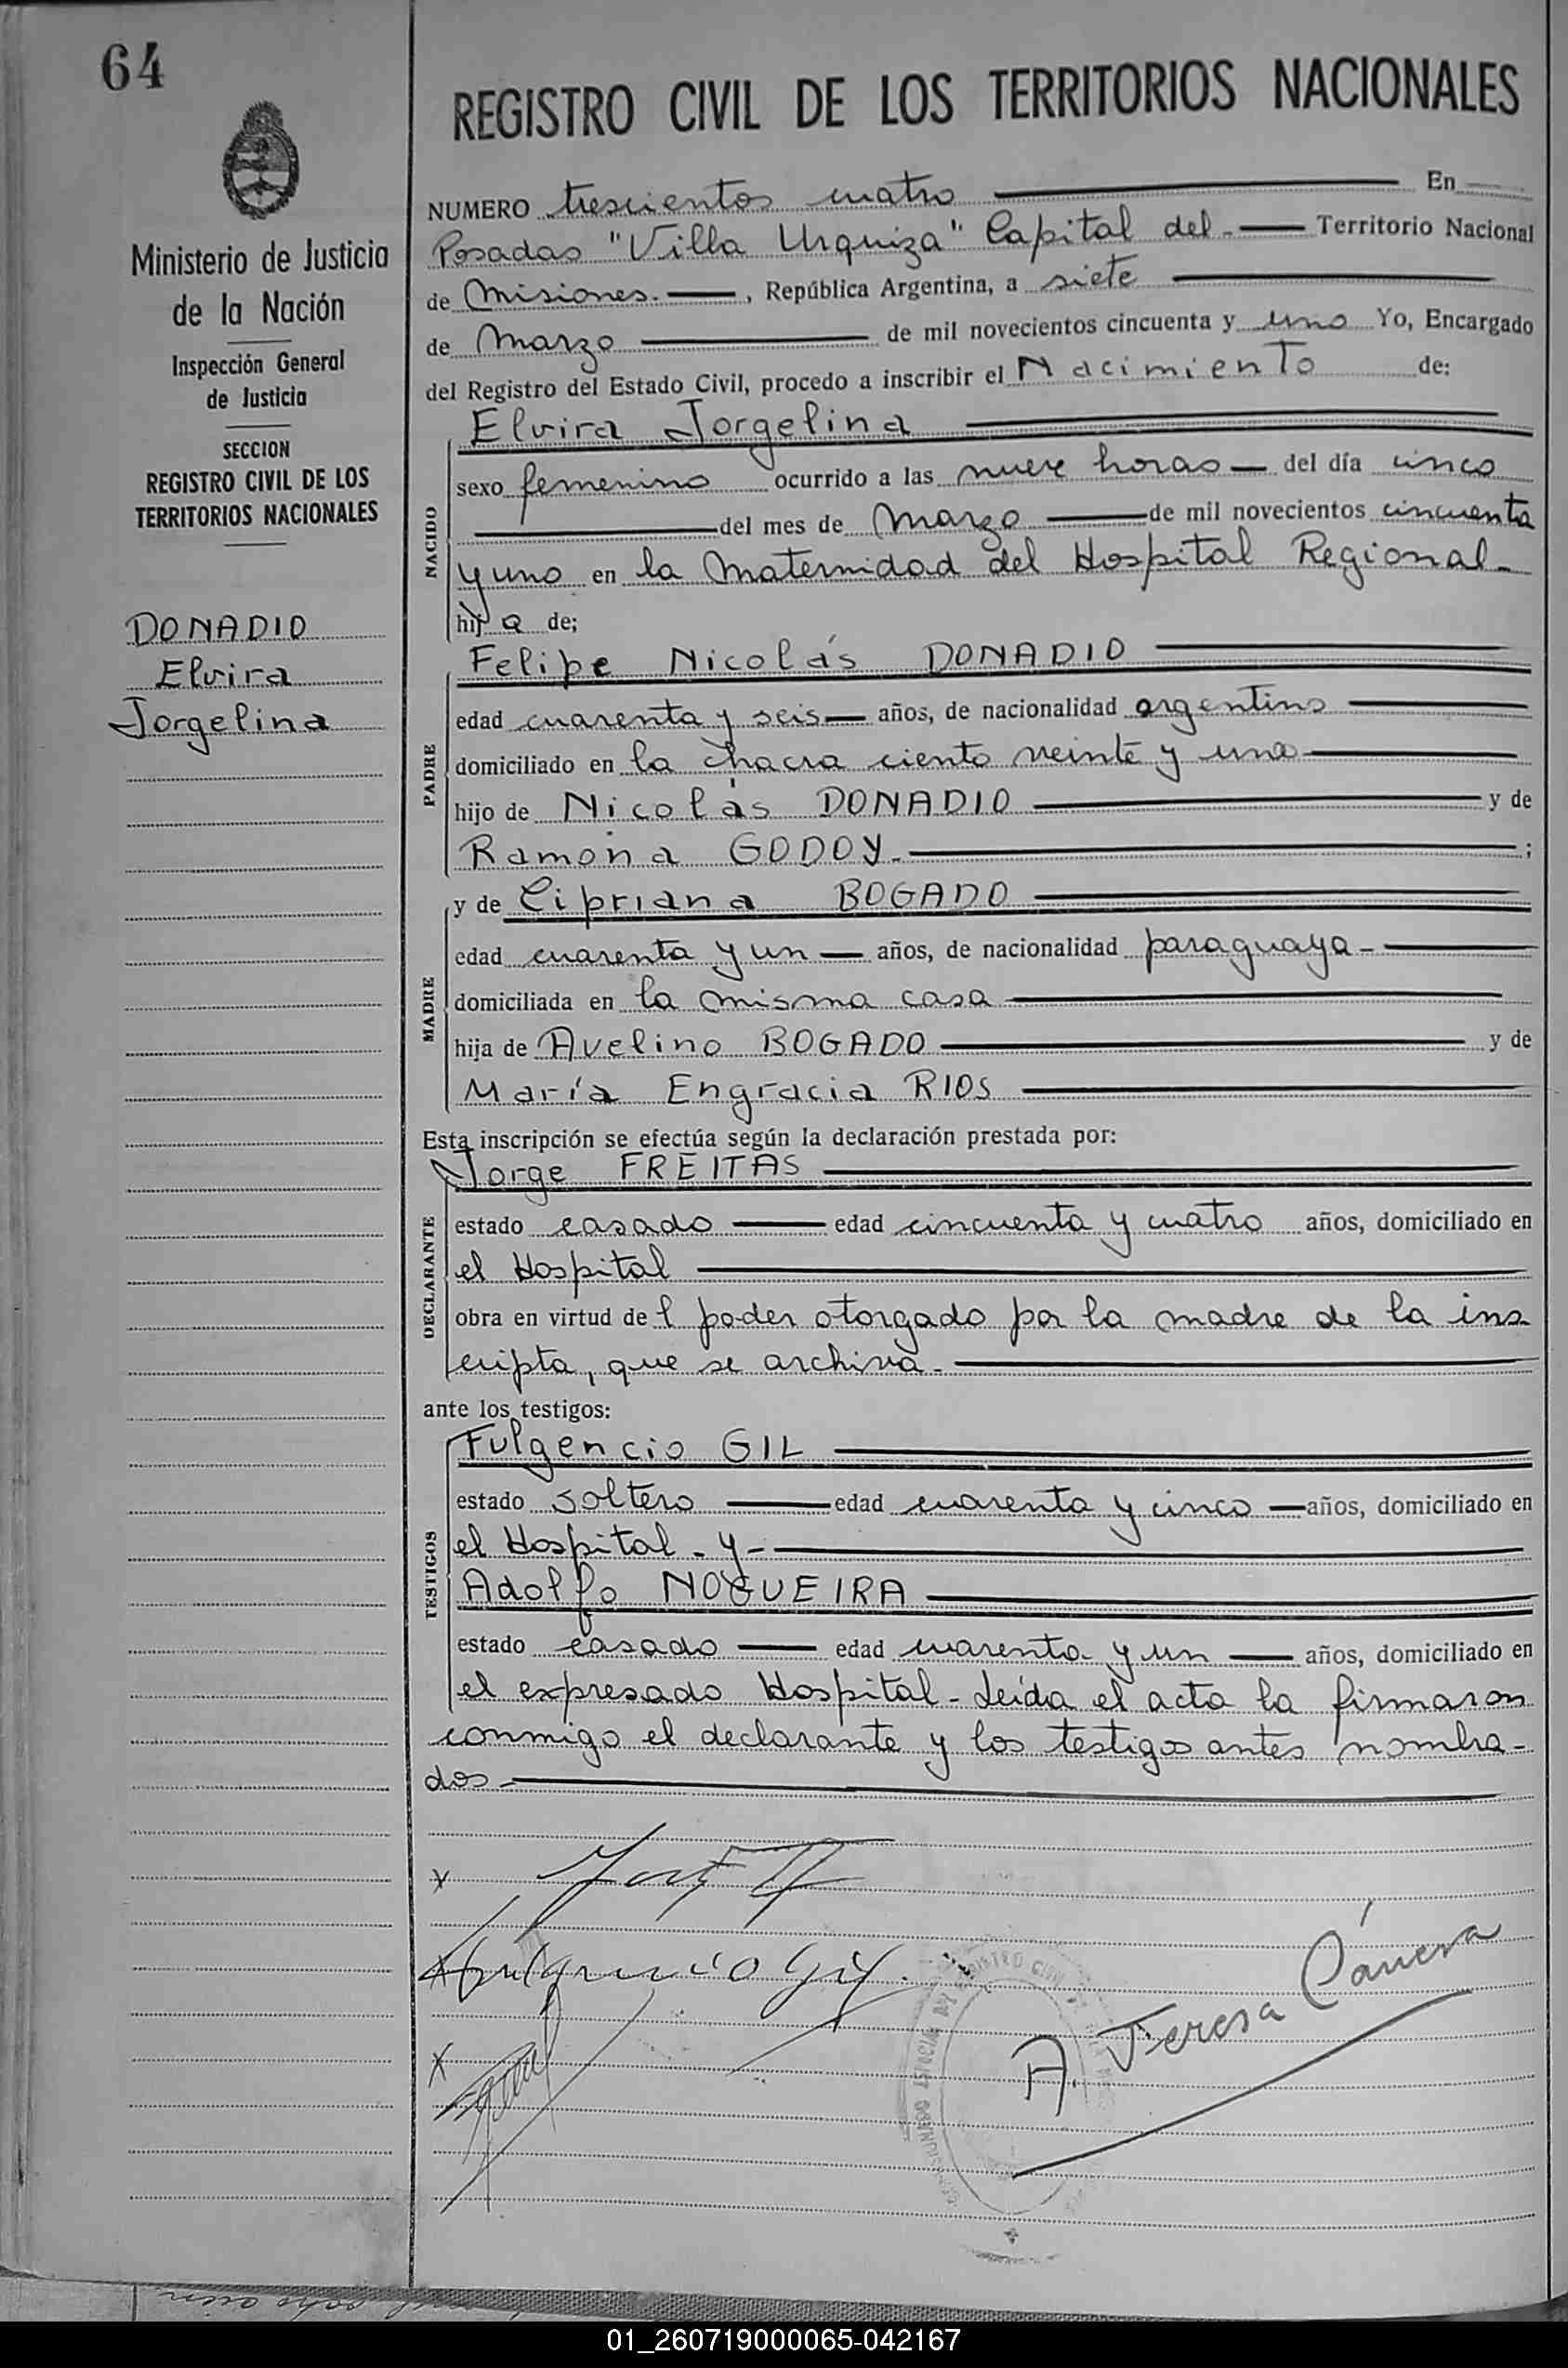 64
REGISTRO CIVIL DE LOS TERRITORIOS NACIONALES
Ministerio de Justicia
de la Nación
Inspección General
de Justicia
SECCION
REGISTRO CIVIL DE LOS
TERRITORIOS NACIONALES
DONADIO
Elvira
Jorgelina
NUMERO trescientos cuatro En
Posadas "Villa Urquiza" Capital del.- Territorio Nacional
de Misiones.-, República Argentina, a siete
de Marzo de mil novecientos cincuenta y uno Yo, Encargado
del Registro del Estado Civil, procedo a inscribir el Nacimiento de:
NACIDO
Elvira Jorgelina
sexo femenino ocurrido a las nueve horas del día cinco
del mes de Marzo de mil novecientos cincuenta
y uno en la Maternidad del Hospital Regional-
hija de;
PADRE
Felipe Nicolás DONADIO
edad cuarenta y seis años, de nacionalidad argentino
domiciliado en la chacra ciento veinte y una
hijo de Nicolás DONADIO y de
Ramona GODOY.- ;
MADRE
y de Cipriana BOGADO
edad cuarenta y un años, de nacionalidad paraguaya-
domiciliada en la misma casa
hija de Avelino BOGADO y de
María Engracia RIOS
Esta inscripción se efectúa según la declaración prestada por:
DECLARANTE
Jorge FREITAS
estado casado edad cincuenta y cuatro años, domiciliado en
el Hospital
obra en virtud del poder otorgado por la madre de la ins
cripta, que se archiva.-
ante los testigos:
TESTIGOS
Fulgencio GIL
estado soltero edad cuarenta y cinco años, domiciliado en
el Hospital - y -
Adolfo NOGUEIRA
estado casado edad cuarenta y un años, domiciliado en
el expresado Hospital - Leída el acta la firmaron
conmigo el declarante y los testigos antes nombra-
dos -
x
x Fulgencio Gil.
x
A. Teresa Cánera
01_260719000065-042167